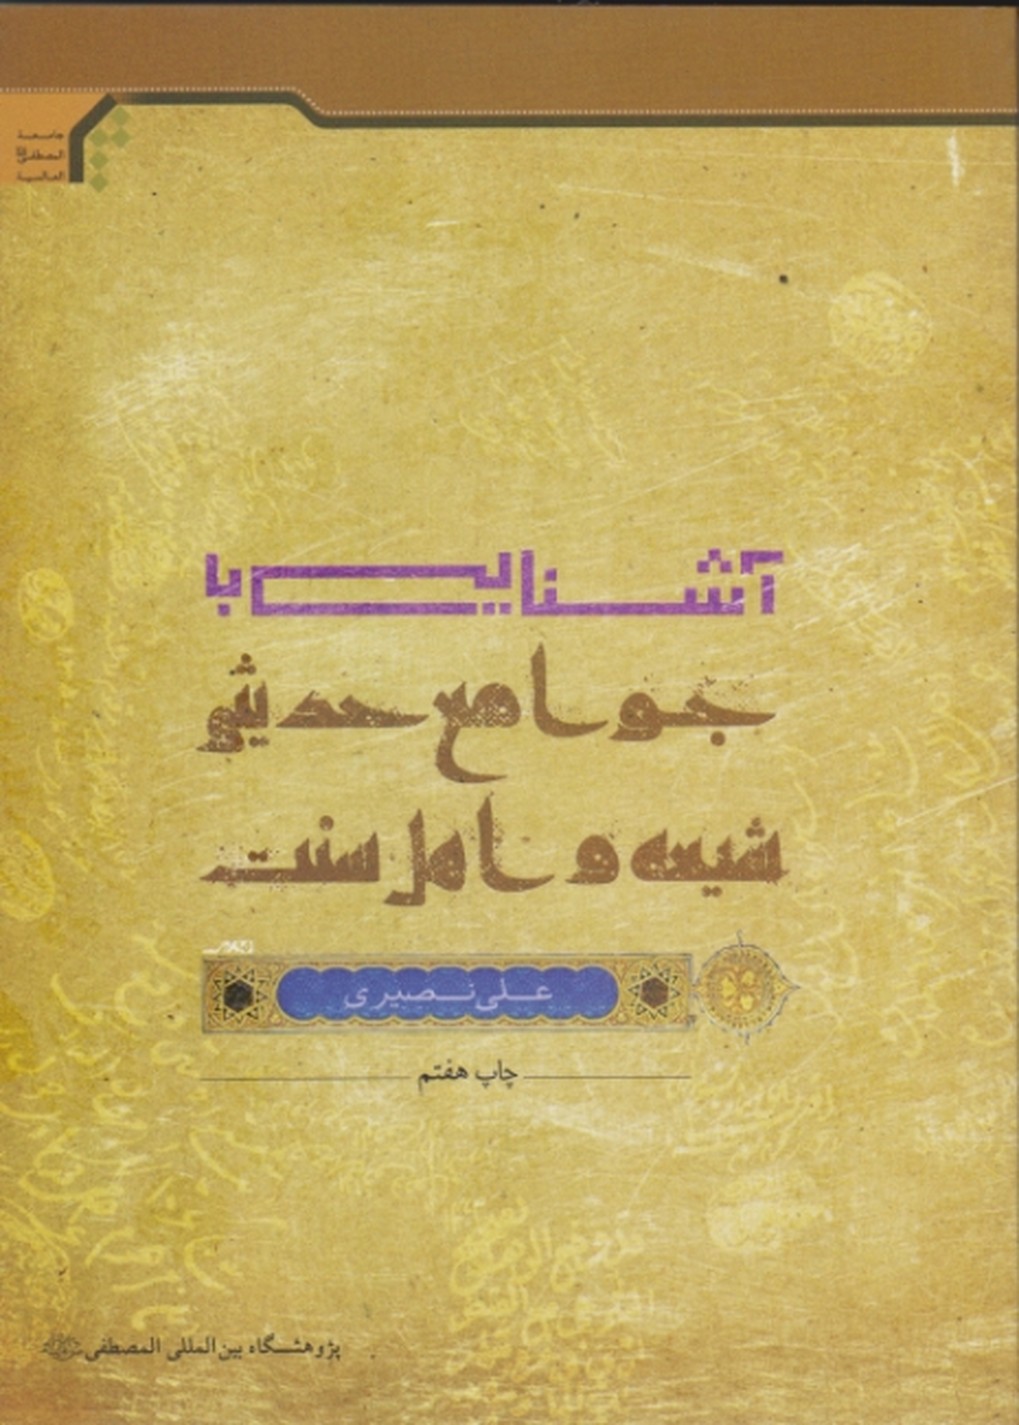 جامعة
المصطفی
العالمیة
آشنایی با
جوامع حدیثی
شیعه و اهل سنت
علی نصیری
چاپ هفتم
پژوهشگاه بین‌المللی المصطفی